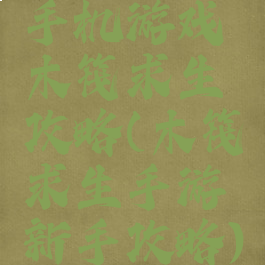 手机游戏
木筏求生
攻略(木筏
求生手游
新手攻略)